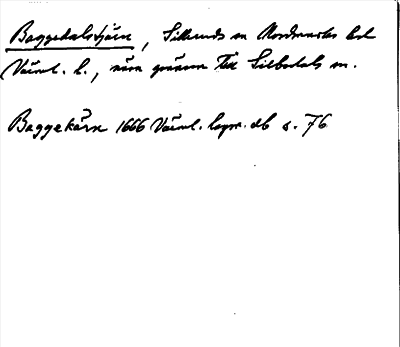 Baggedalstjärn, Sillerud sn Nordmarks hd
Värml. l., nära gränsen till Silbodals sn.
Baggekärn 1666 Värml. lagm.db s. 76